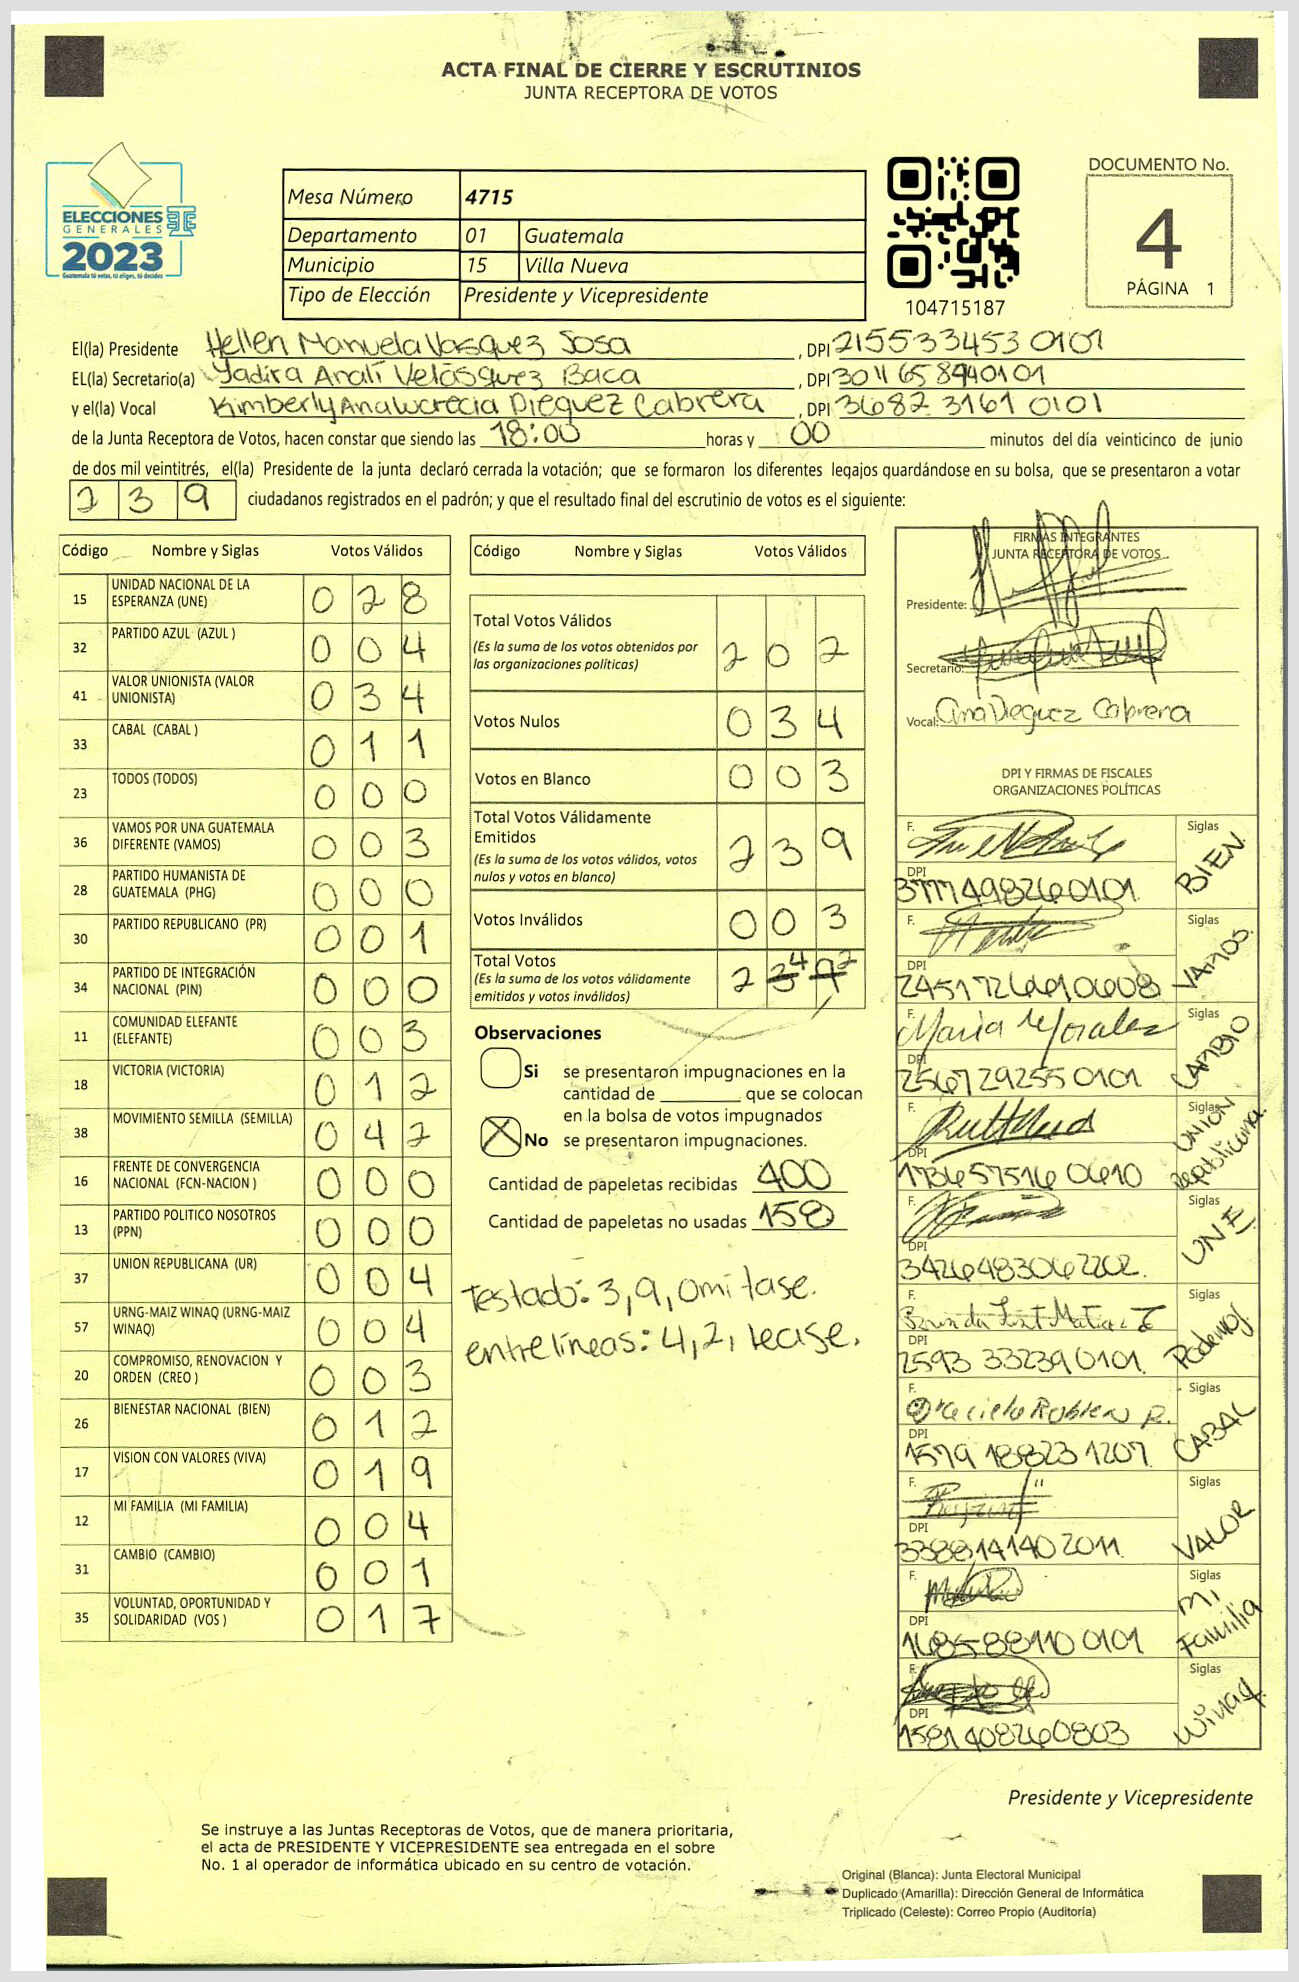 ACTA FINAL DE CIERRE Y ESCRUTINIOS
JUNTA RECEPTORA DE VOTOS
ELECCIONES
GENERALES
2023
Guatemala tú votas, tú eliges, tú decides
Mesa Número 4715
Departamento 01 Guatemala
Municipio 15 Villa Nueva
Tipo de Elección Presidente y Vicepresidente
104715187
DOCUMENTO No.
4
PÁGINA 1
El(la) Presidente Hellen Manuela Vasquez Sosa, DPI 215533453 0101
EL(la) Secretario(a) Yadira Analí Velásquez Baca, DPI 3011658940101
y el(la) Vocal Kimberly Ana Lucrecia Dieguez Cabrera, DPI 3682 3161 0101
de la Junta Receptora de Votos, hacen constar que siendo las 18:00 horas y 00 minutos del día veinticinco de junio
de dos mil veintitrés, el(la) Presidente de la junta declaró cerrada la votación; que se formaron los diferentes legajos guardándose en su bolsa, que se presentaron a votar
2 3 9 ciudadanos registrados en el padrón; y que el resultado final del escrutinio de votos es el siguiente:
Código Nombre y Siglas Votos Válidos
15 UNIDAD NACIONAL DE LA ESPERANZA (UNE) 0 2 8
32 PARTIDO AZUL (AZUL ) 0 0 4
41 VALOR UNIONISTA (VALOR UNIONISTA) 0 3 4
33 CABAL (CABAL ) 0 1 1
23 TODOS (TODOS) 0 0 0
36 VAMOS POR UNA GUATEMALA DIFERENTE (VAMOS) 0 0 3
28 PARTIDO HUMANISTA DE GUATEMALA (PHG) 0 0 0
30 PARTIDO REPUBLICANO (PR) 0 0 1
34 PARTIDO DE INTEGRACIÓN NACIONAL (PIN) 0 0 0
11 COMUNIDAD ELEFANTE (ELEFANTE) 0 0 3
18 VICTORIA (VICTORIA) 0 1 2
38 MOVIMIENTO SEMILLA (SEMILLA) 0 4 2
16 FRENTE DE CONVERGENCIA NACIONAL (FCN-NACION ) 0 0 0
13 PARTIDO POLITICO NOSOTROS (PPN) 0 0 0
37 UNION REPUBLICANA (UR) 0 0 4
57 URNG-MAIZ WINAQ (URNG-MAIZ WINAQ) 0 0 4
20 COMPROMISO, RENOVACION Y ORDEN (CREO ) 0 0 3
26 BIENESTAR NACIONAL (BIEN) 0 1 2
17 VISION CON VALORES (VIVA) 0 1 9
12 MI FAMILIA (MI FAMILIA) 0 0 4
31 CAMBIO (CAMBIO) 0 0 1
35 VOLUNTAD, OPORTUNIDAD Y SOLIDARIDAD (VOS ) 0 1 7
Código Nombre y Siglas Votos Válidos
Total Votos Válidos 2 0 2
(Es la suma de los votos obtenidos por
las organizaciones políticas)
Votos Nulos 0 3 4
Votos en Blanco 0 0 3
Total Votos Válidamente
Emitidos 2 3 9
(Es la suma de los votos válidos, votos
nulos y votos en blanco)
Votos Inválidos 0 0 3
Total Votos 2 3 4 9 2
(Es la suma de los votos válidamente
emitidos y votos inválidos)
Observaciones
Si se presentaron impugnaciones en la
cantidad de ________ que se colocan
en la bolsa de votos impugnados
X No se presentaron impugnaciones.
Cantidad de papeletas recibidas 400
Cantidad de papeletas no usadas 158
Testado: 3, 9, omitase.
entrelíneas: 4, 2, Lease.
FIRMAS INTEGRANTES
JUNTA RECEPTORA DE VOTOS
Presidente:
Secretario:
Vocal: Ana Dieguez Cabrera
DPI Y FIRMAS DE FISCALES
ORGANIZACIONES POLÍTICAS
F. Siglas BIEN
DPI 377749826 0101
F. Siglas VAMOS
DPI 2451726610608
F. Maria Morales Siglas CAMBIO
DPI 256729255 0101
F. Siglas UNION Republicana
DPI 173657516 0610
F. Siglas UNE
DPI 3426483062202.
F. Siglas Podemos
DPI 2593 33239 0101
F. Siglas CABAL
DPI 1579 18823 1207
F. Siglas VALOR
DPI 338814140 2011
F. Siglas Mi Familia
DPI 168588110 0101
F. Siglas Winaq.
DPI 1581408260803
Presidente y Vicepresidente
Se instruye a las Juntas Receptoras de Votos, que de manera prioritaria,
el acta de PRESIDENTE Y VICEPRESIDENTE sea entregada en el sobre
No. 1 al operador de informática ubicado en su centro de votación.
Original (Blanca): Junta Electoral Municipal
Duplicado (Amarilla): Dirección General de Informática
Triplicado (Celeste): Correo Propio (Auditoría)